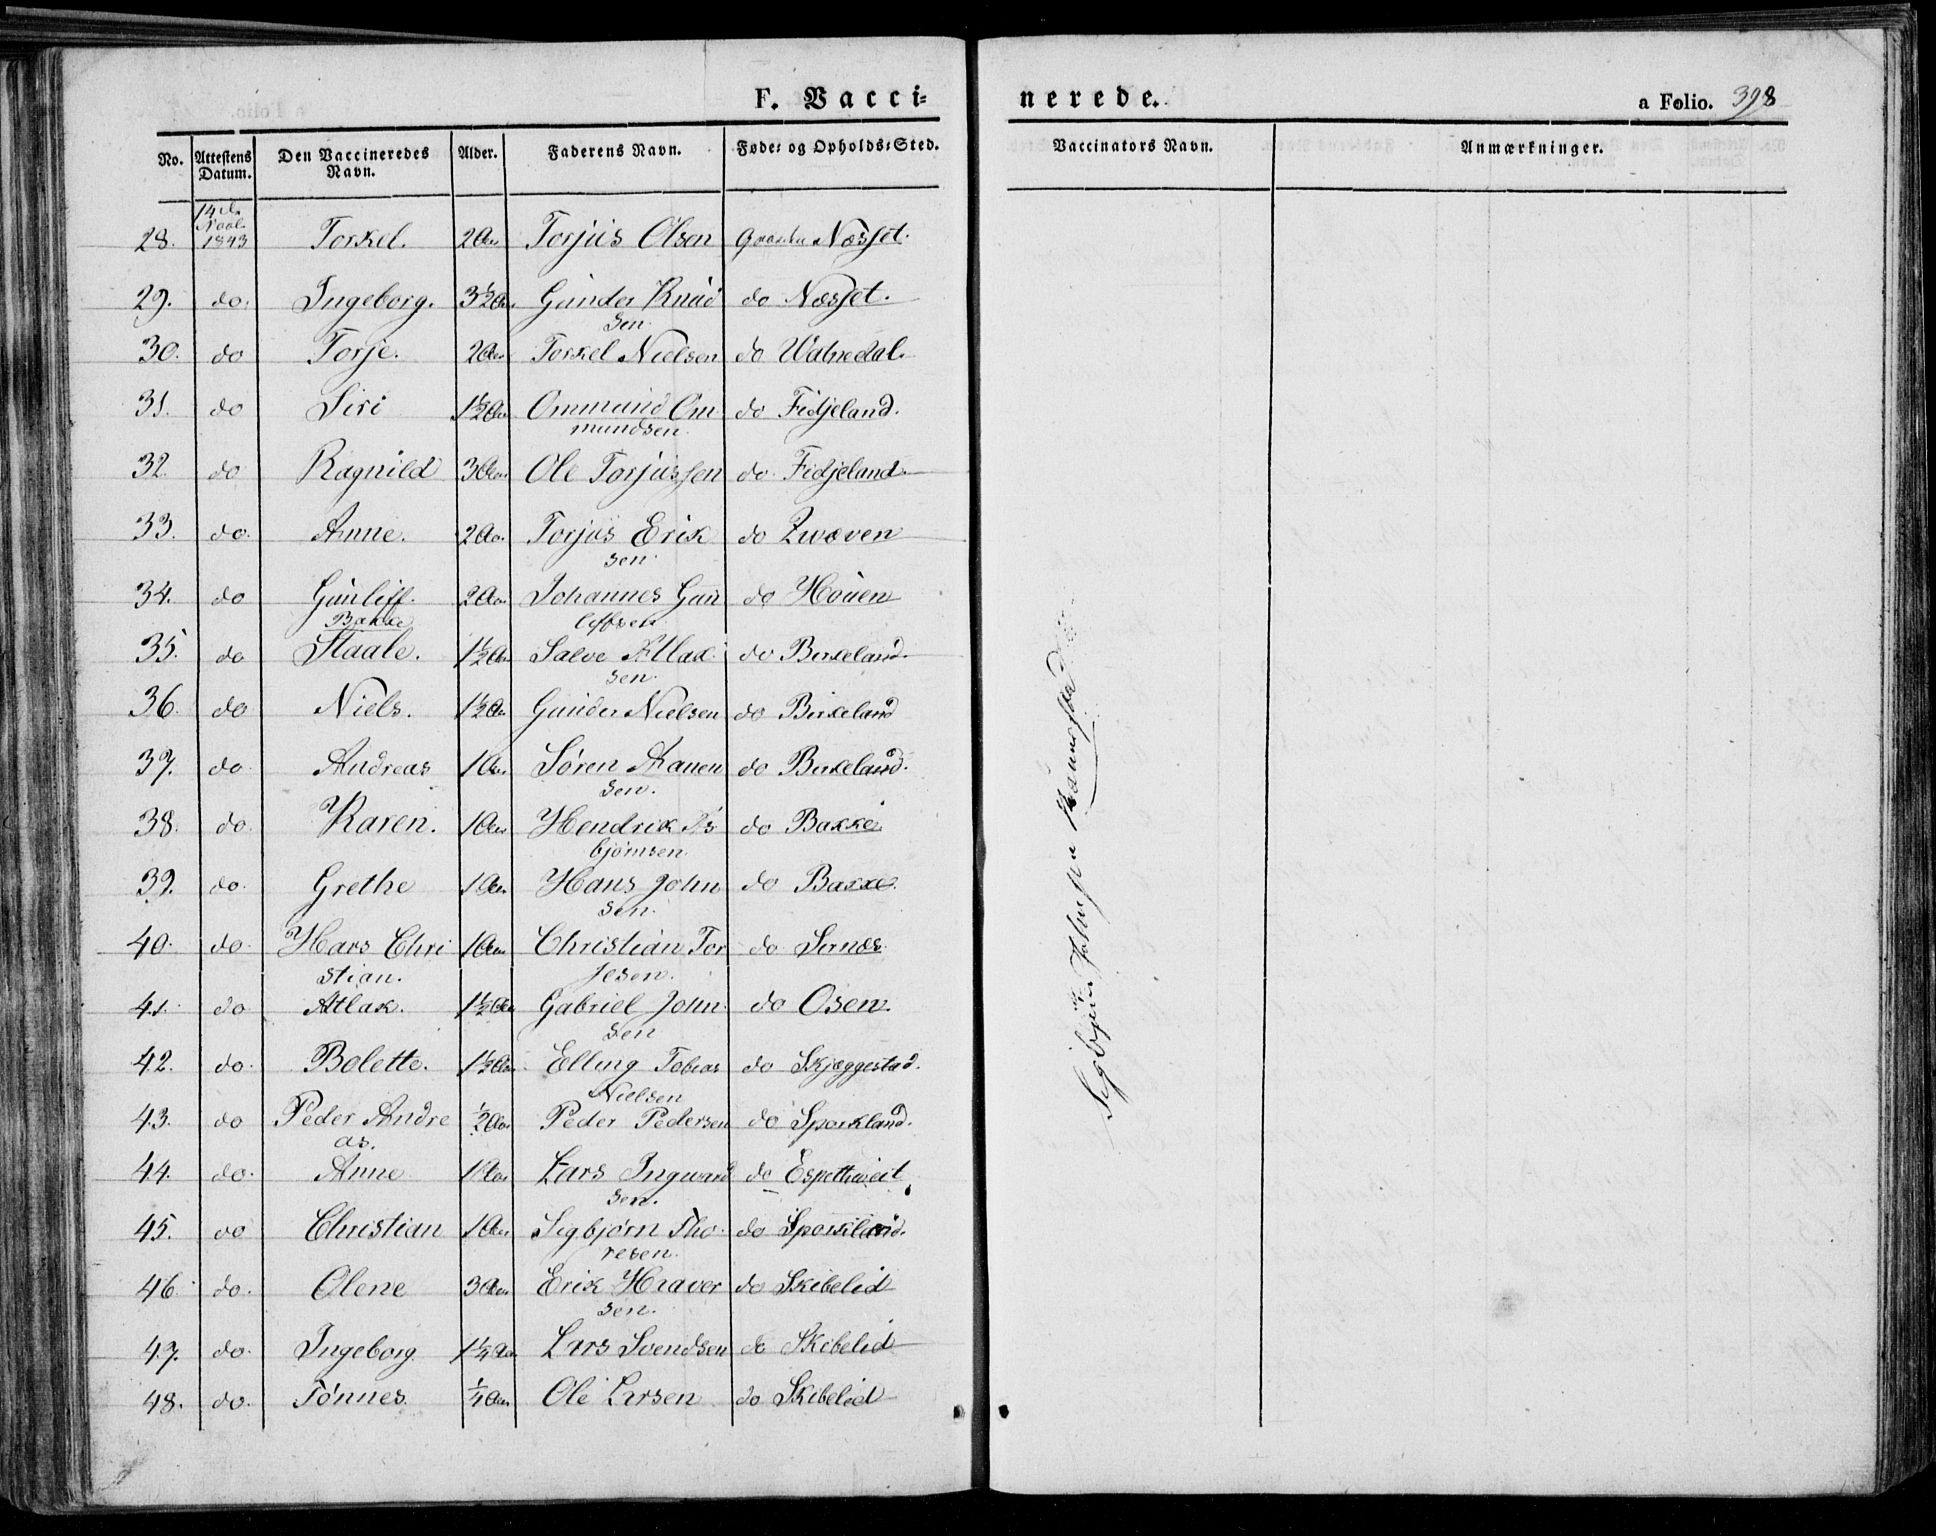 F. Vacci=
nerede.
a Folio. 398
No. Attestens Datum. Den Vaccineredes Navn. Alder. Faderens Navn. Føde= og Opholds=Sted. Vaccinators Navn. Anmærkninger.
14de
28. 1843 Torkel. 2 Aar Torjus Olsen Gaarden Næsset.
29. do. Ingeborg. 3½ Aar Gunder Knud
sen.
do Næsset.
30. do Torje. 2 Aar Torkel Nielsen do
31. do Siri 1½ Aar Ommund Om
mundsen.
do Fidjeland.
32. do Ragnild 3 Aar Ole Torjussen do. Fidjeland.
33. do. Anne. 2 Aar Torjus Erik
sen.
do Qwæven
34. do Gunliff. 2 Aar Johannes Gun
leffsen
do Houen
Bakke
35. do Staale. 1½ Aar Salve Atlak
sen.
do Birkeland.
36. do Niels. 1½ Aar Gunder Nielsen do Birkeland
37. do Andreas 1 Aar Søren Aanen
sen.
do Birkeland.
38. do. Karen. 1 Aar Hendrik As
bjørnsen.
do Bakke
39. do. Grethe 1 Aar Hans John
sen.
do Bakke.
40. do. Hans Chri
stian.
1 Aar Christian Tor
jesen.
do Sirnæs.
41. do Atlak. 1½ Aar Gabriel John
sen
do Osen.
42. do. Bolette. 1½ Aar Elling Tobias
Nielsen
do Skjæggestad.
43. do Peder Andre
as.
½ Aar Peder Pedersen do Sporkland.
44. do. Anne 1 Aar Lars Ingward
sen.
do Espettweit
45. do Christian 1 Aar Segbjørn Tho
resen.
do Sporkland.
46. do. Olene 3 Aar Erik Hraver
sen.
do Skibelid
47. do. Ingeborg 1¼ Aar Lars Svendsen do Skibelid
48. do. Tønnes. ¼ Aar Ole Larsen do Skibelid